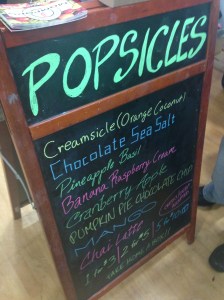 POPSICLES
Creamsicle (Orange Coconut)
Chocolate Sea Salt
Pineapple Basil
Banana Raspberry Cream
Cranberry Apple
PUMPKIN PIE CHOCOLATE CHIP
MANGO
Chai Latte
1 for $3 2 for $5